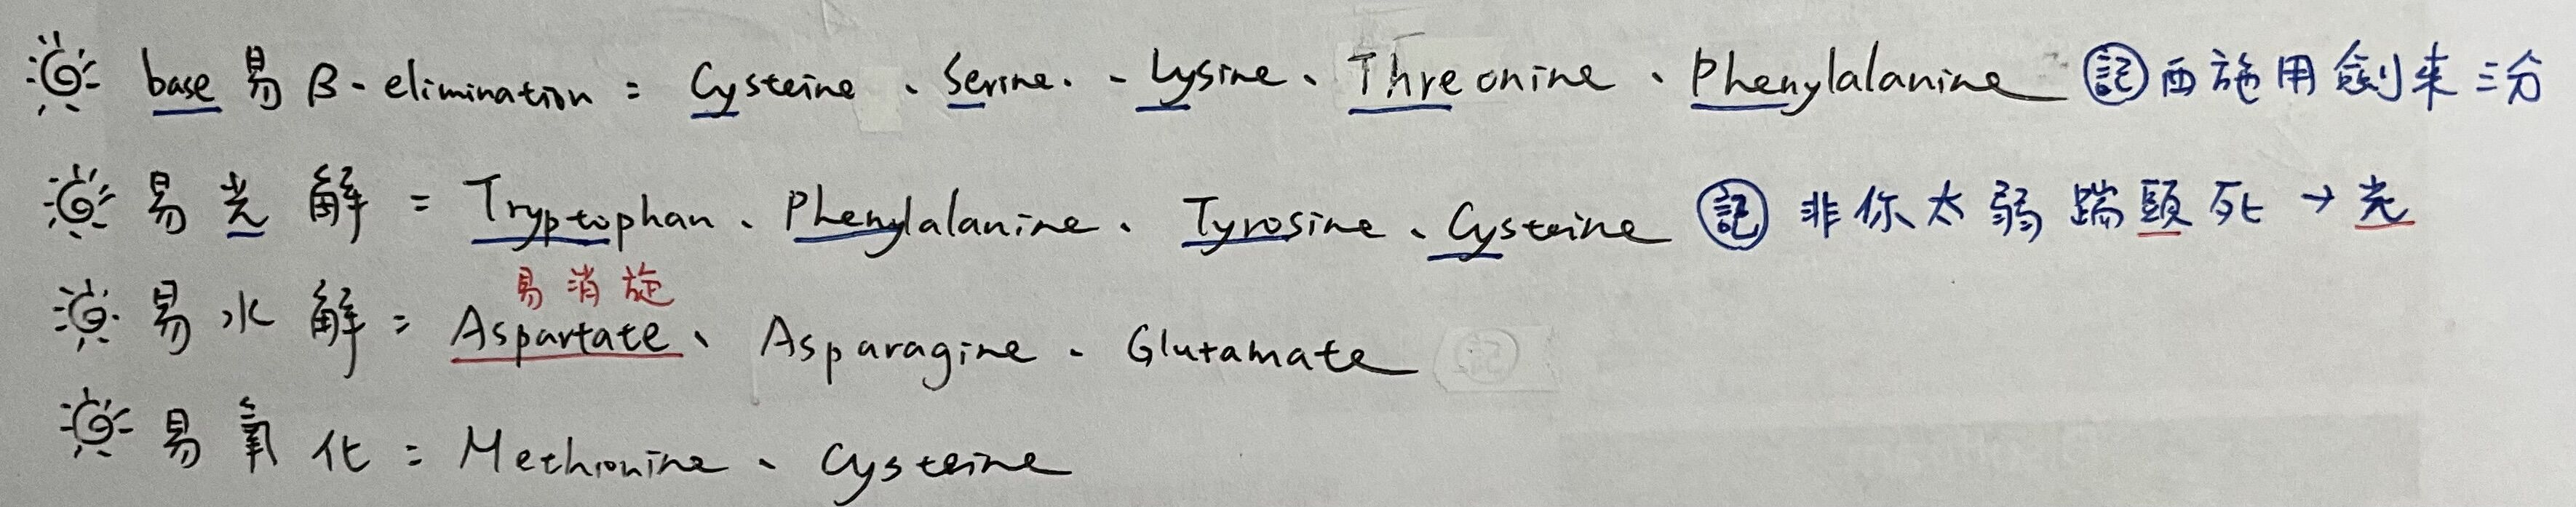 base 易 β-elimination = Cysteine、Serine、Lysine、Threonine、Phenylalanine 記 西施用劍來三分
易光解 = Tryptophan、Phenylalanine、Tyrosine、Cysteine 記 非你太弱踹頭死 → 光
易消旋
易水解 = Aspartate、Asparagine、Glutamate
易氧化 = Methionine、Cysteine